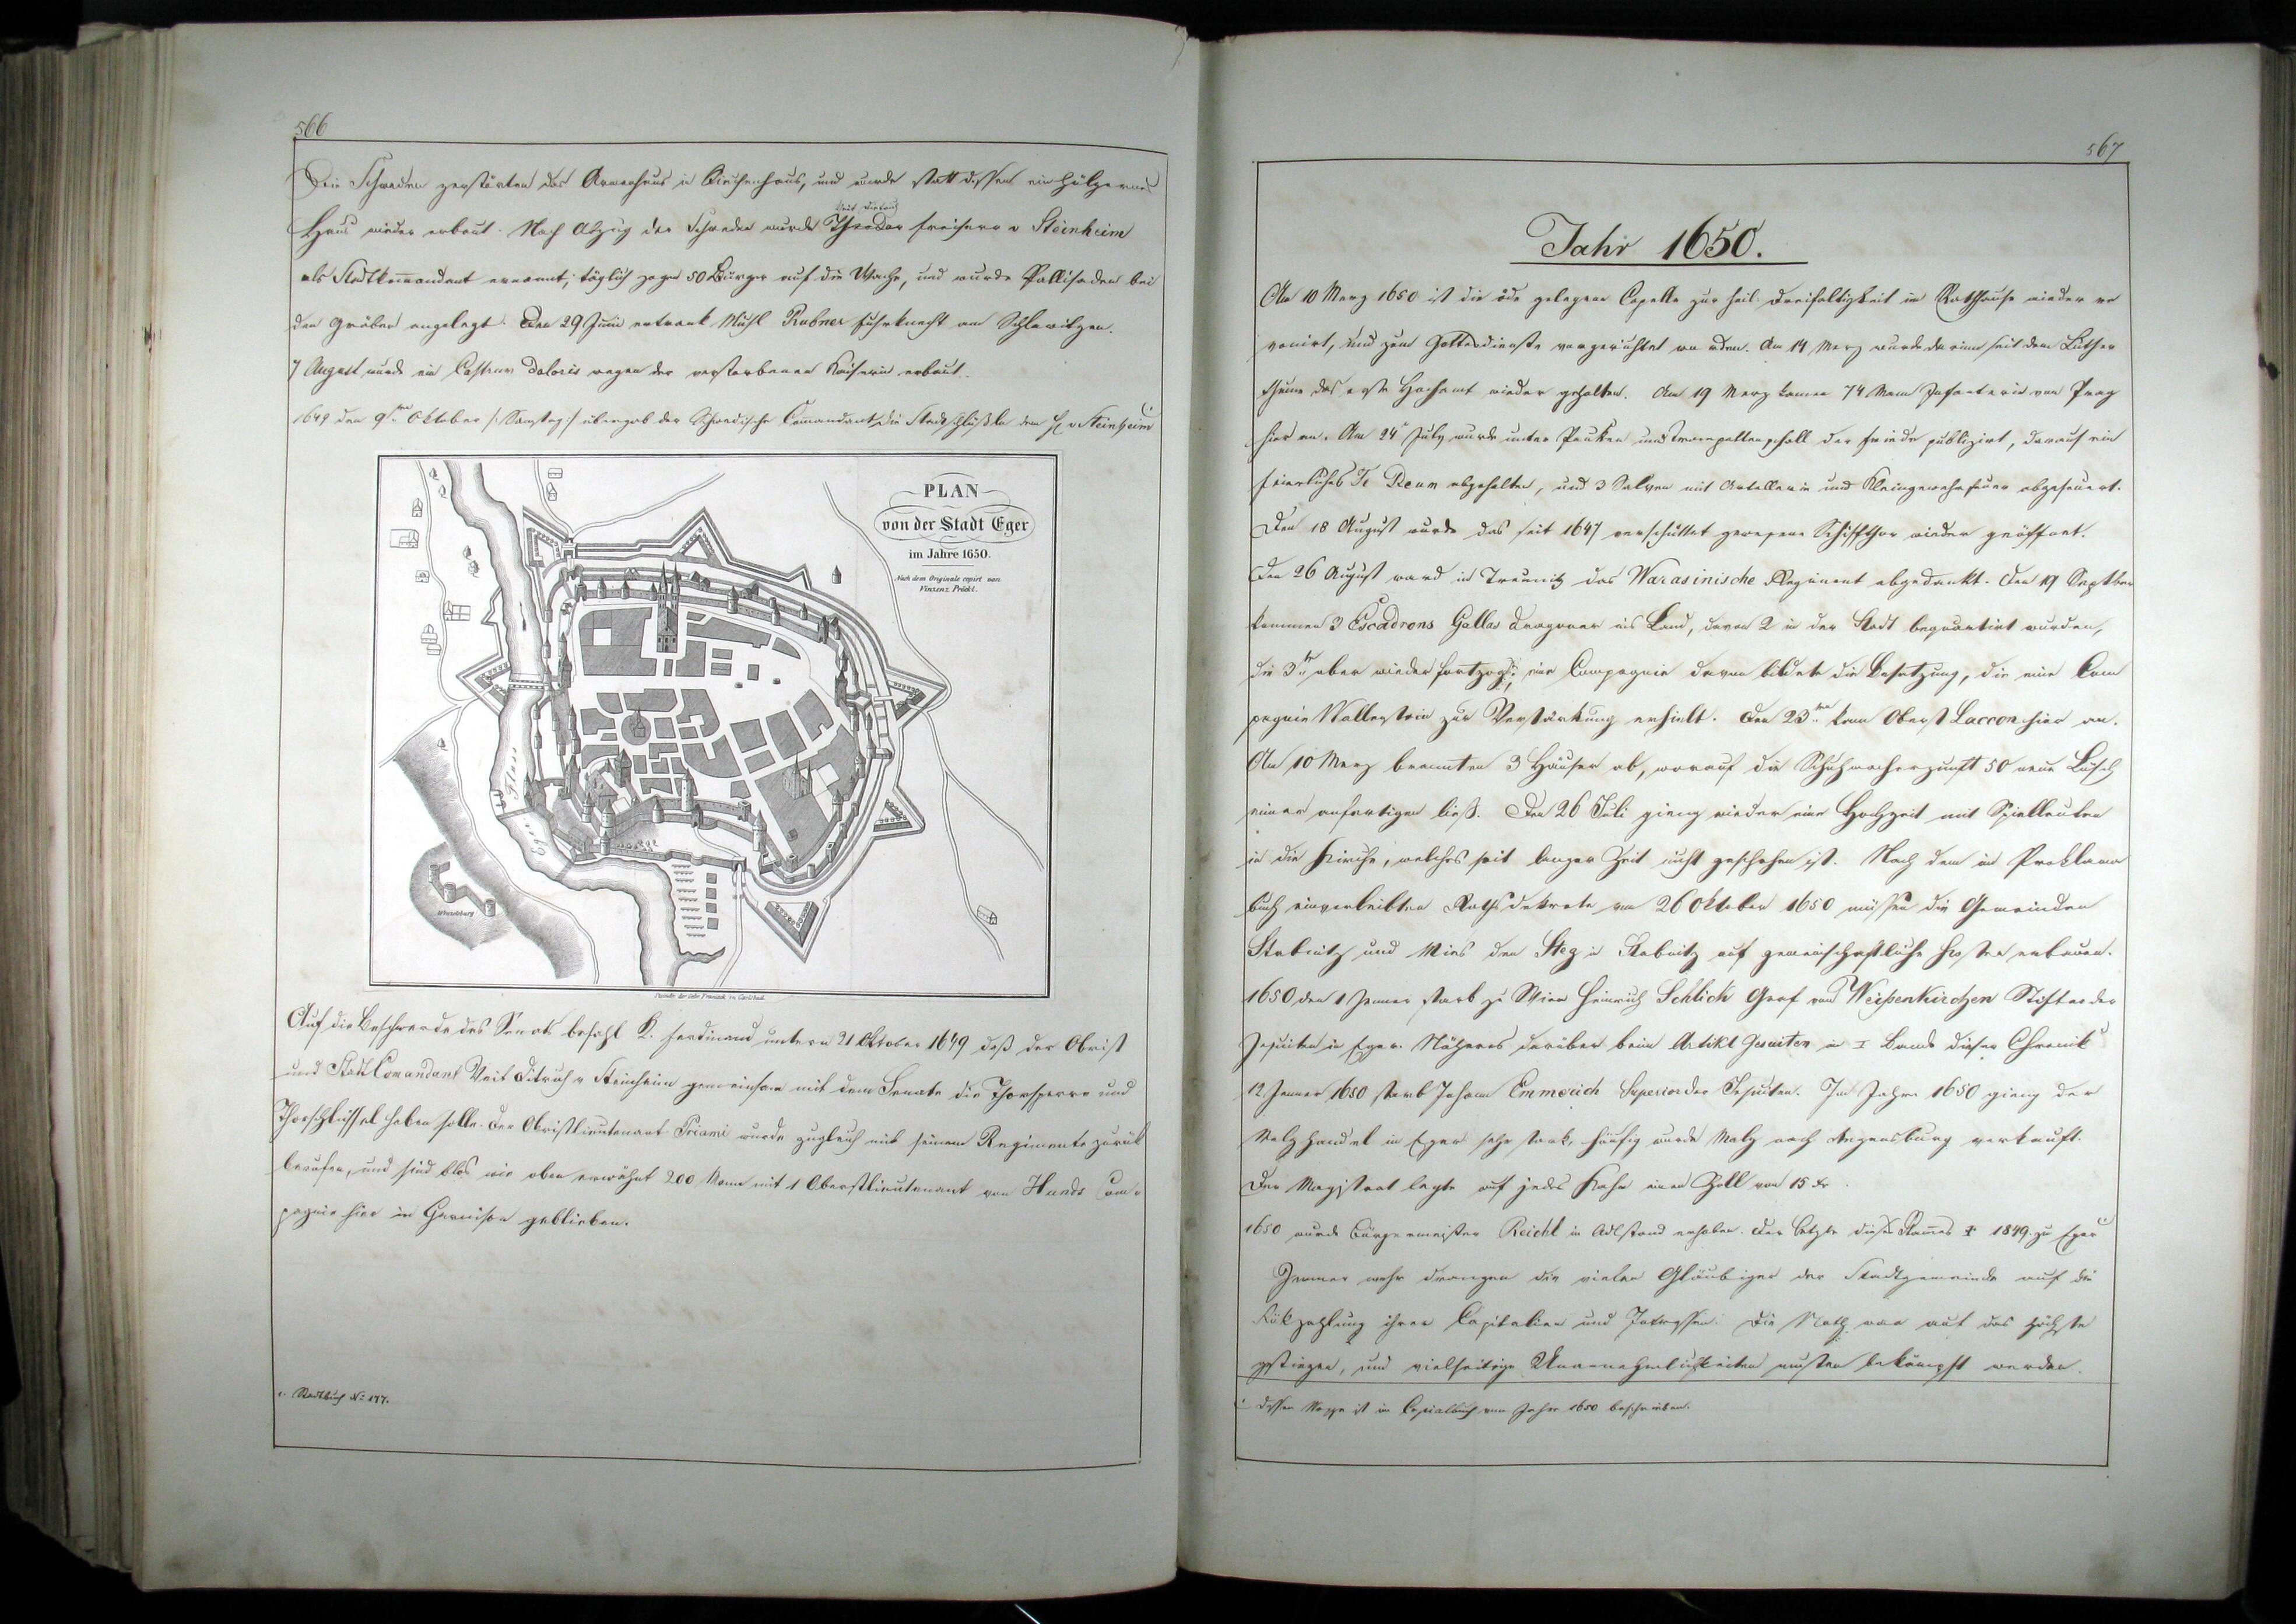 566
Die Schweden zerstörten das Armenhaus u Siechenhaus, und wurde statt dessen ein hölzernes
Veit Dietrich
Haus wieder erbaut. Nach Abzug der Schweden wurde Theodor Freiherr v Steinheim
als Stadtkom̅andant ernannt; täglich zogen 50 Bürger auf die Wache, und wurde Pallisaden bei
den Gräben angelegt. Den 29 Juni ertrank Rubner Fuhrknecht am
7 August wurde ein Castrum Doloris wegen der verstorbenen Kaiserin erbaut.
1649 den 9ten Oktober /: Samstag :/ übergab der Schwedische Com̅andant die Stadtschlüßln dem H v Steinheim
PLAN
von der Stadt Eger
im Jahre 1650.
Nach dem Originale copirt von
Vinzenz Pröckl.
Eger Fluss
Wenzelsburg
Steindr. der Gebr. Franieck in Carlsbad.
Auf die Beschwerde des Senats befahl K. Ferdinand unterm 21 Oktober 1649 daß der Obrist
und Stadt Comandant Veit Ditrich v Steinheim gemeinsam mit dem Senate die Thorsperre und
Thorschlüssel haben solle. Der Obristlieutenant Priami wurde zugleich mit seinem Regimente zurük
berufen, und sind blos wie oben erwähnt 200 Mann mit 1 Oberstlieutenant von Hunds Com-
pagnie hier in Garnison geblieben.
Stadtbuch No 177.
567
Jahr 1650.
Am 10 Merz 1650 ist die öde gelegene Capelle zur heil. Dreifaltigkeit im Rathhause wieder re
novirt, und zum Gottesdienste vorgerichtet worden. Am 14 Merz wurde darinn seit dem Luther
thume das erste Hochamt wieder gehalten. Am 19 Merz kamen 74 Mann Infanterie von Prag
hier an. Am 24t July wurde unter Pauken und Trompettenschall der Friede publizirt, darauf ein
feierliches Te Deum abgehalten, und 3 Salven mit Artellerie und Kleingewehrfeuer abgefeuert.
Den 18 August wurde das seit 1647 verschüttet gewesene Schiffthor wieder geöffnet.
Den 26 August ward in Treunitz das Warasinische Regiment abgedankt. Den 19 Septber
kommen 3 Escadrons Gallas Dragoner ins Land, davon 2 in der Stadt bequartirt wurden,
die 3te aber wieder fortzog; eine Compagnie davon bildete die Besetzung, die eine Com
pagnie Wallenstein zur Verstärkung erhielt. Den 23ten kam Oberst Laccon hier an.
Am 10 Merz brannten 3 Häuser ab, worauf die Schuhmacherzunft 50 neue Lösch
eimer anfertigen ließ. Den 26 Juli gieng wieder eine Hochzeit mit Spielleuten
in die Kirche, welches seit langer Zeit nicht geschehen ist. Nach dem im Proklama
buch einverleibten Rathsdekrete vom 26 Oktober 1650 müßen die Gemeinden
Stabnitz und Mies den Steg in Stabnitz auf gemeinschaftliche Kosten erbauen.
1650 den 1 Jenner starb zu Wien Heinrich Schlick Graf von Weißenkirchen Stifter der
Jesuiten in Eger. Näheres darüber beim Artikl Jesuiten in I Bande dieser Chronik
12 Jenner 1650 starb Johann Emmerich Superior der Jesuiten. Im Jahre 1650 gieng der
Malzhandel in Eger sehr stark, häufig wurde Malz nach Regensburg verkauft.
Der Magistrat legte auf jedes Kahr einen Zoll von 15 Kr.
1650 wurde Bürgermeister Reichl in Adlstand erhoben. Der letzte dieses Stam̅es † 1849 zu Eger
Immer mehr drangen die vielen Gläubiger der Stadtgemeinde auf die
Rükzahlung ihrer Capitalien und Interessen. Die Noth war auf das höchste
gestiegen, und vielseitige Unannehmlichkeiten mußten bekämpft werden.
Dessen Wappe ist im Copialbuch vom Jahre 1650 beschrieben.